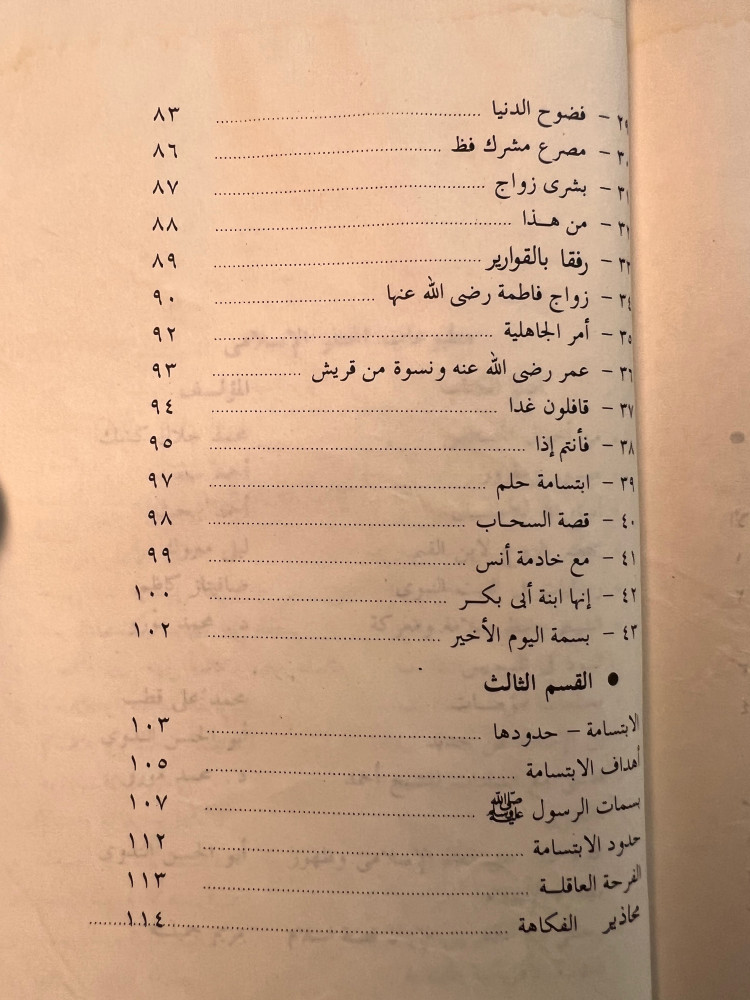 ٢٩ – فضوح الدنيا ........ ٨٣
٣٠ – مصرع مشرك فظ ........ ٨٦
٣١ – بشرى زواج ........ ٨٧
٣٢ – من هــذا ........ ٨٨
٣٣ – رفقا بالقوارير ........ ٨٩
٣٤ – زواج فاطمة رضى الله عنها ........ ٩٠
٣٥ – أمر الجاهلية ........ ٩٢
٣٦ – عمر رضى الله عنه ونسوة من قريش ........ ٩٣
٣٧ – قافلون غدا ........ ٩٤
٣٨ – فأنتم إذا ........ ٩٥
٣٩ – ابتسامة حلم ........ ٩٧
٤٠ – قصة السحـاب ........ ٩٨
٤١ – مع خادمة أنس ........ ٩٩
٤٢ – إنها ابنة أبى بكــر ........ ١٠٠
٤٣ – بسمة اليوم الأخير ........ ١٠٢
● القسم الثالث
الابتسامة – حدودها ........ ١٠٣
أهداف الابتسامة ........ ١٠٥
بسمات الرسول ﷺ ........ ١٠٧
حدود الابتسامة ........ ١١٢
الفرحة العاقلــة ........ ١١٣
محاذير الفكاهة ........ ١١٤